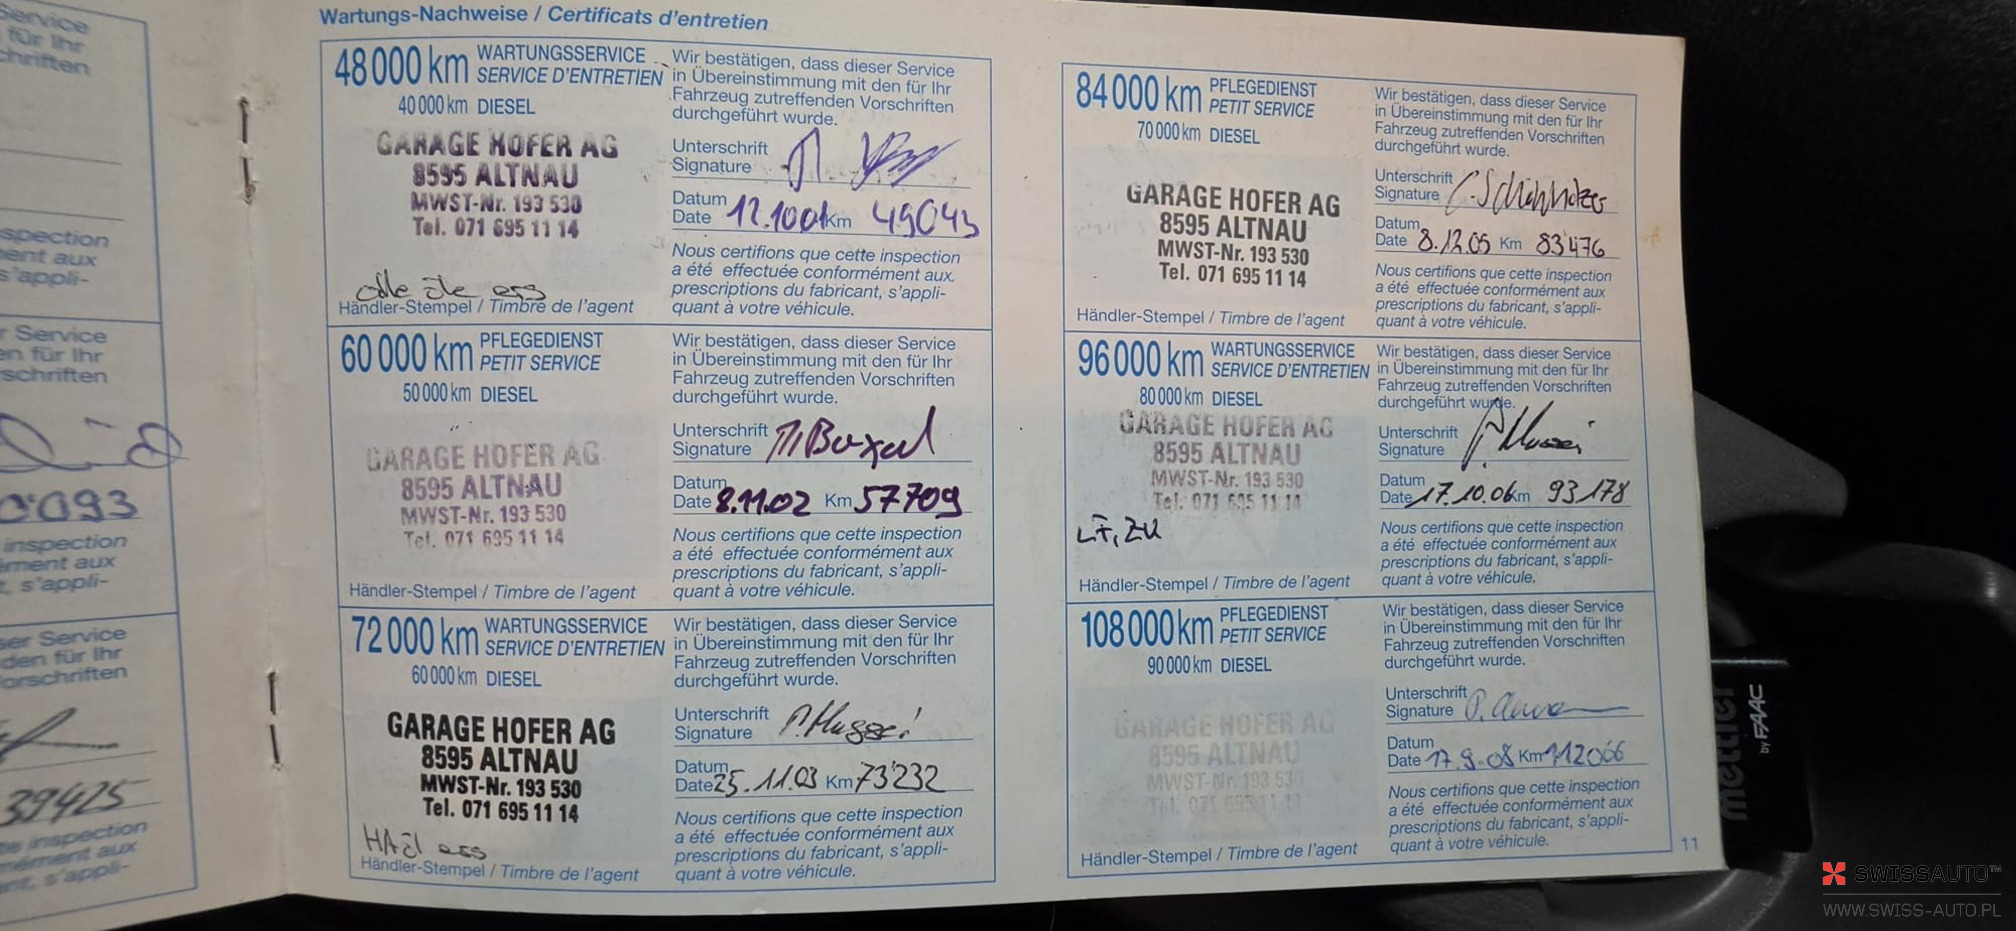 Service
für Ihr
chriften
spection
ment aux
s'appli-
r Service
en für Ihr
schriften
0'093
inspection
ément aux
t, s'appli-
ser Service
den für Ihr
orschriften
39425
te inspection
mément aux
ent, s'appli-
Wartungs-Nachweise / Certificats d'entretien
48 000 km WARTUNGSSERVICE
SERVICE D'ENTRETIEN
40 000 km DIESEL
GARAGE HOFER AG
8595 ALTNAU
MWST-Nr. 193 530
Tel. 071 695 11 14
Händler-Stempel / Timbre de l'agent
Wir bestätigen, dass dieser Service
in Übereinstimmung mit den für Ihr
Fahrzeug zutreffenden Vorschriften
durchgeführt wurde.
Unterschrift
Signature
Datum
Date 12.10.01 Km 49043
Nous certifions que cette inspection
a été effectuée conformément aux
prescriptions du fabricant, s'appli-
quant à votre véhicule.
60 000 km PFLEGEDIENST
PETIT SERVICE
50 000 km DIESEL
GARAGE HOFER AG
8595 ALTNAU
MWST-Nr. 193 530
Tel. 071 695 11 14
Händler-Stempel / Timbre de l'agent
Wir bestätigen, dass dieser Service
in Übereinstimmung mit den für Ihr
Fahrzeug zutreffenden Vorschriften
durchgeführt wurde.
Unterschrift
Signature
Datum
Date 8.11.02 Km 57709
Nous certifions que cette inspection
a été effectuée conformément aux
prescriptions du fabricant, s'appli-
quant à votre véhicule.
72 000 km WARTUNGSSERVICE
SERVICE D'ENTRETIEN
60 000 km DIESEL
GARAGE HOFER AG
8595 ALTNAU
MWST-Nr. 193 530
Tel. 071 695 11 14
Händler-Stempel / Timbre de l'agent
Wir bestätigen, dass dieser Service
in Übereinstimmung mit den für Ihr
Fahrzeug zutreffenden Vorschriften
durchgeführt wurde.
Unterschrift
Signature
Datum
Date 25.11.03 Km 73'232
Nous certifions que cette inspection
a été effectuée conformément aux
prescriptions du fabricant, s'appli-
quant à votre véhicule.
84 000 km PFLEGEDIENST
PETIT SERVICE
70 000 km DIESEL
GARAGE HOFER AG
8595 ALTNAU
MWST-Nr. 193 530
Tel. 071 695 11 14
Händler-Stempel / Timbre de l'agent
Wir bestätigen, dass dieser Service
in Übereinstimmung mit den für Ihr
Fahrzeug zutreffenden Vorschriften
durchgeführt wurde.
Unterschrift
Signature
Datum
Date 8.12.05 Km 83'476
Nous certifions que cette inspection
a été effectuée conformément aux
prescriptions du fabricant, s'appli-
quant à votre véhicule.
96 000 km WARTUNGSSERVICE
SERVICE D'ENTRETIEN
80 000 km DIESEL
GARAGE HOFER AG
8595 ALTNAU
MWST-Nr. 193 530
Tel. 071 695 11 14
LF, ZU
Händler-Stempel / Timbre de l'agent
Wir bestätigen, dass dieser Service
in Übereinstimmung mit den für Ihr
Fahrzeug zutreffenden Vorschriften
durchgeführt wurde.
Unterschrift
Signature
Datum
Date 17.10.06 Km 93178
Nous certifions que cette inspection
a été effectuée conformément aux
prescriptions du fabricant, s'appli-
quant à votre véhicule.
108 000 km PFLEGEDIENST
PETIT SERVICE
90 000 km DIESEL
GARAGE HOFER AG
8595 ALTNAU
MWST-Nr. 193 530
Tel. 071 695 11 14
Händler-Stempel / Timbre de l'agent
Wir bestätigen, dass dieser Service
in Übereinstimmung mit den für Ihr
Fahrzeug zutreffenden Vorschriften
durchgeführt wurde.
Unterschrift
Signature
Datum
Date 17.9.08 Km 112066
Nous certifions que cette inspection
a été effectuée conformément aux
prescriptions du fabricant, s'appli-
quant à votre véhicule.
11
mettler
by FAAC
SWISSAUTO™
WWW.SWISS-AUTO.PL